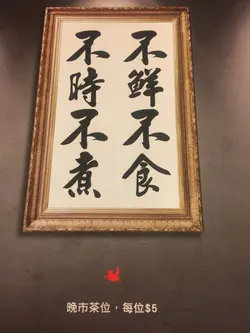 不鮮不食
不時不煮
晚市茶位，每位$5